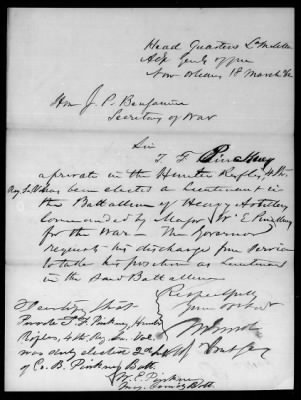 Head Quarters La Militia
Adjt Genls Office
New Orleans 18 March /62
Hon J. P. Benjamin
Secretary of War
Sir
T. F. Pinckney
a private in the Hunter Rifles, 4th
Reg La Vols has been elected a Lieutenant in
the Battallion of Heavy Artillery
Commanded by Major W. E. Pinckney
for the War — The Governor
requests his discharge from Service
to take his position as Lieutenant
in the said Battallion
Respectfully
Your Obt Svt
I certify that
Private T. F. Pinkney, Hunter
Rifles, 4th Reg La. Vol.
was duly elected 2nd Lt
of Co. B. Pinkney Batt.
W. E. Pinkney
Maj. Comdg Batt.